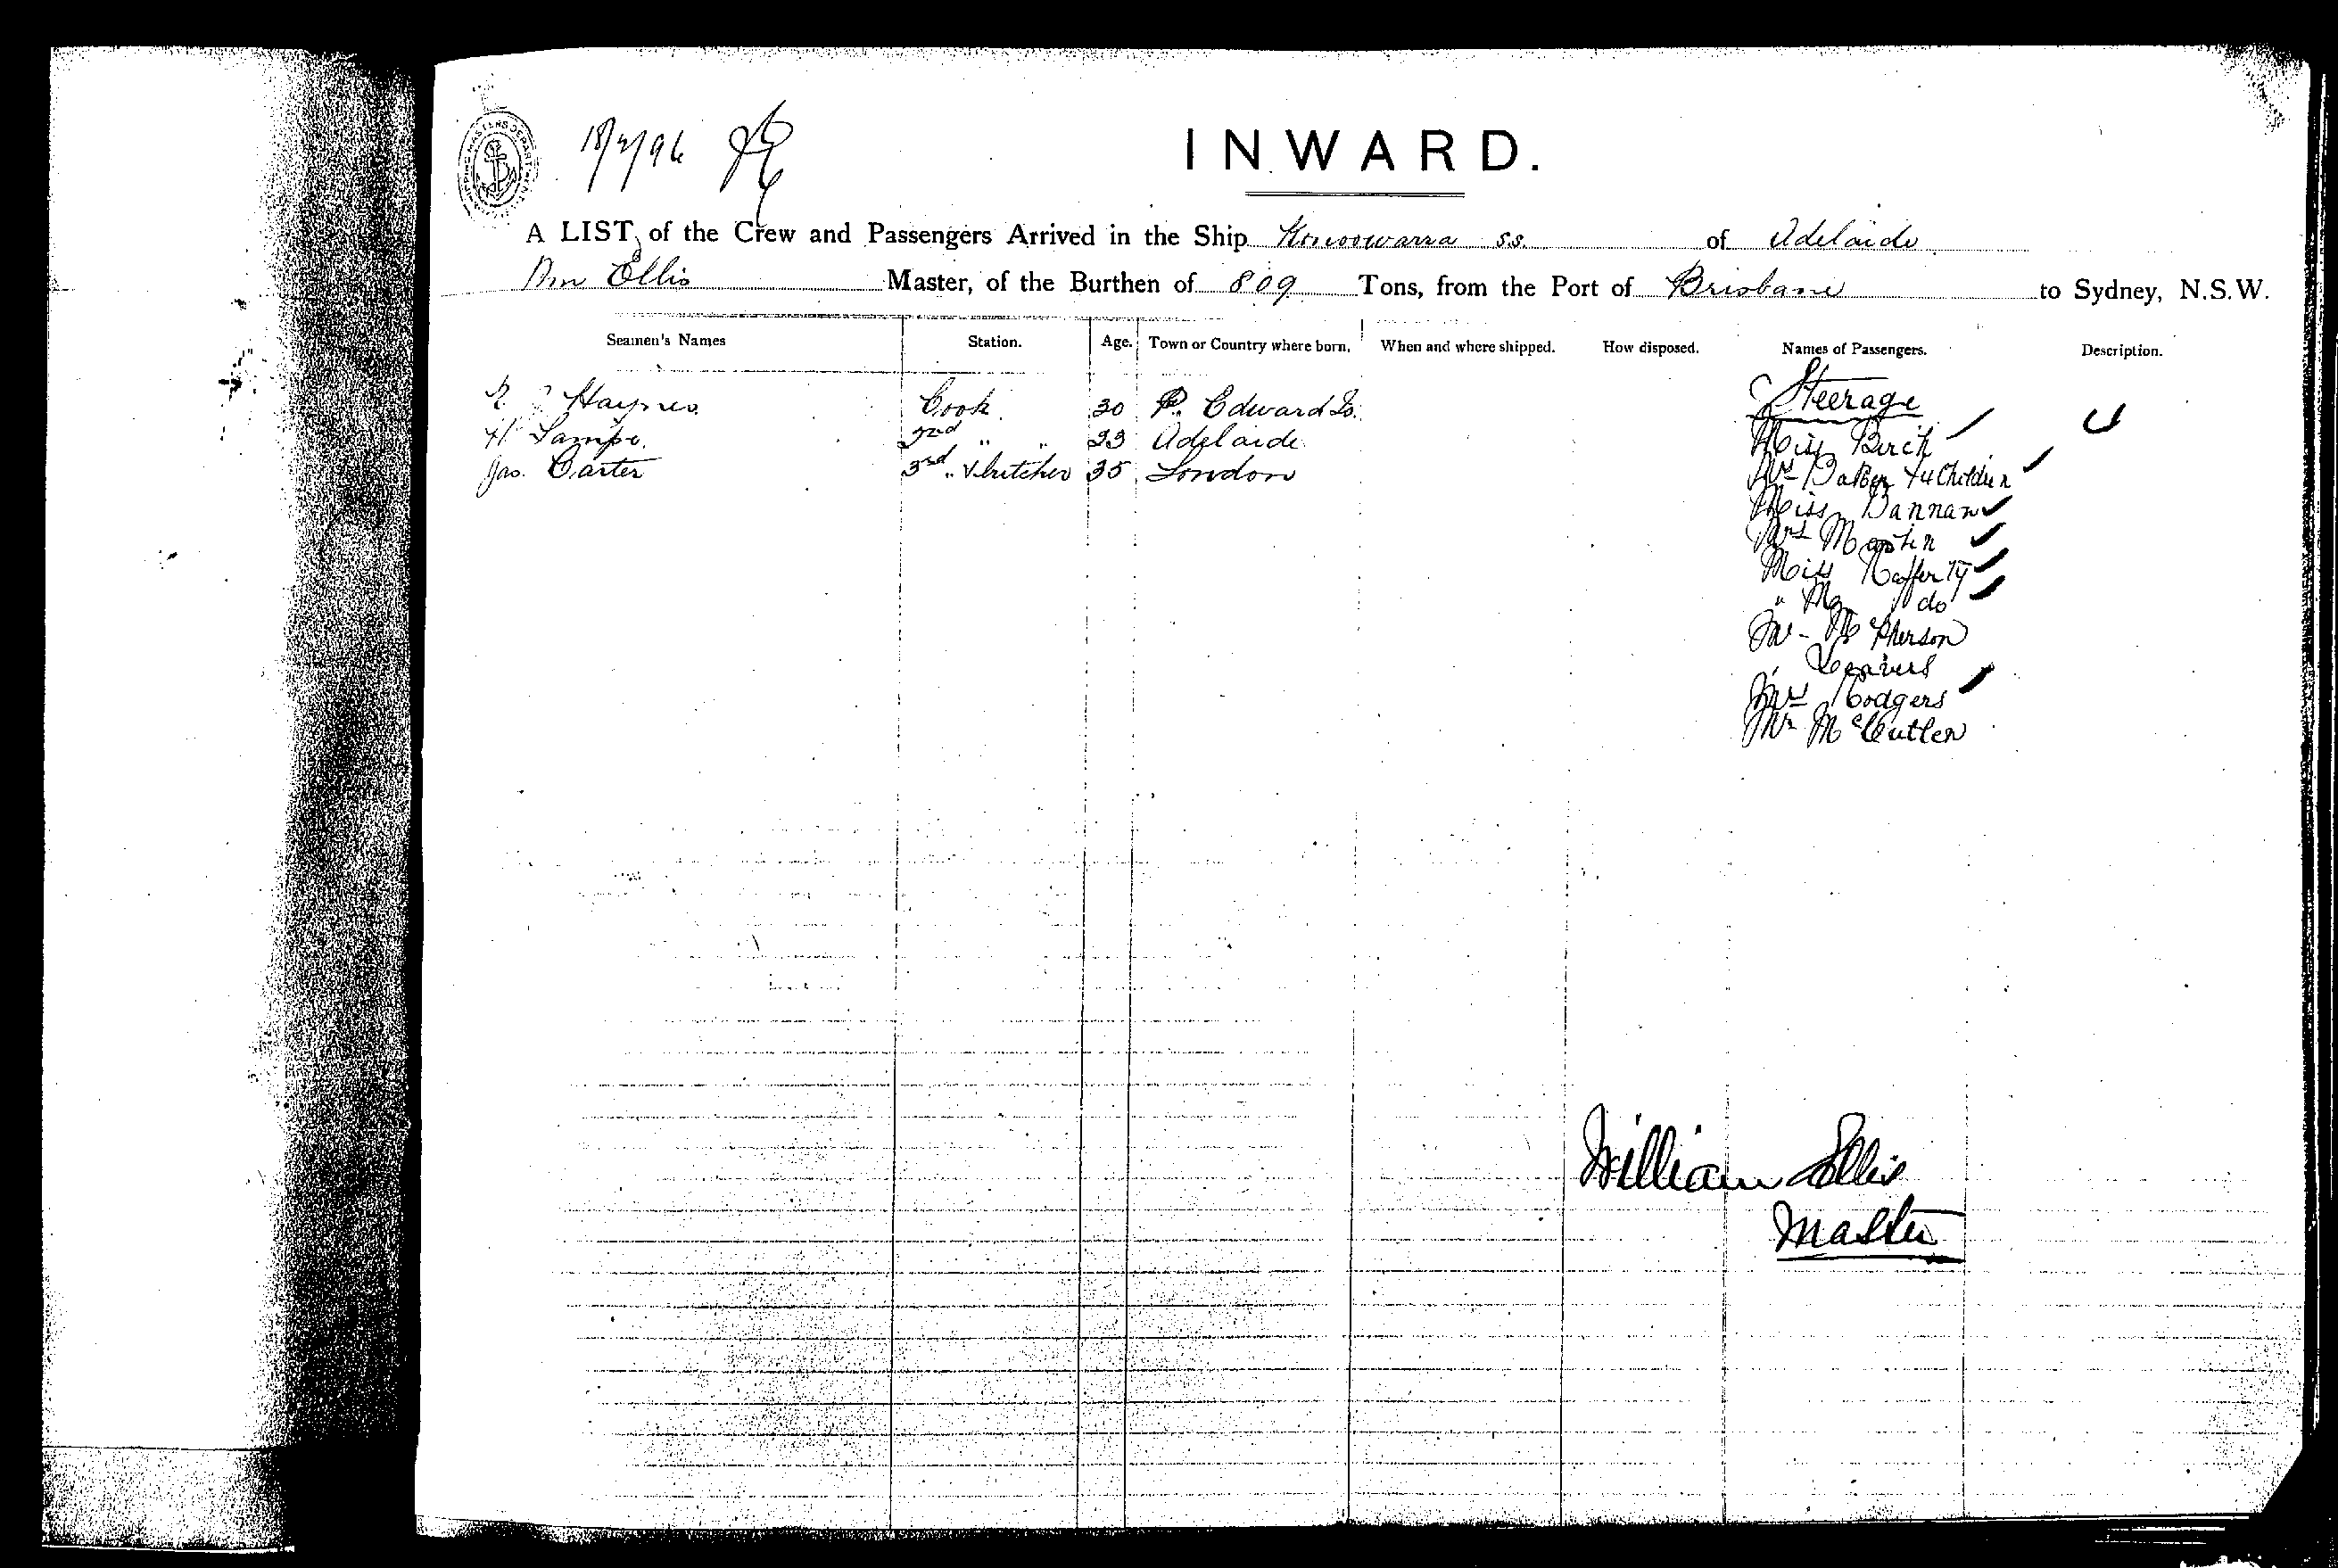 SHIPPING MASTERS DEPARTMENT
18/2/96
INWARD.
A LIST of the Crew and Passengers Arrived in the Ship Konoowarra s.s. of Adelaide
Wm Ellis Master, of the Burthen of 809 Tons, from the Port of Brisbane to Sydney, N.S.W.
Seamen's Names Station. Age. Town or Country where born. When and where shipped. How disposed. Names of Passengers. Description.
Steerage
Haynes Cook 30 P. Edward Is.
H Lampe 2nd " " 23 Adelaide
Miss Birch
Jas. Carter 3rd " & butcher 35 London
Mrs Baker & 4 Children
Miss Bannan
Mrs Martin
Miss Rafferty
" do
Mr McPherson
" Leavers
Mrs Rodgers
Mr McCutlen
William Ellis
Master